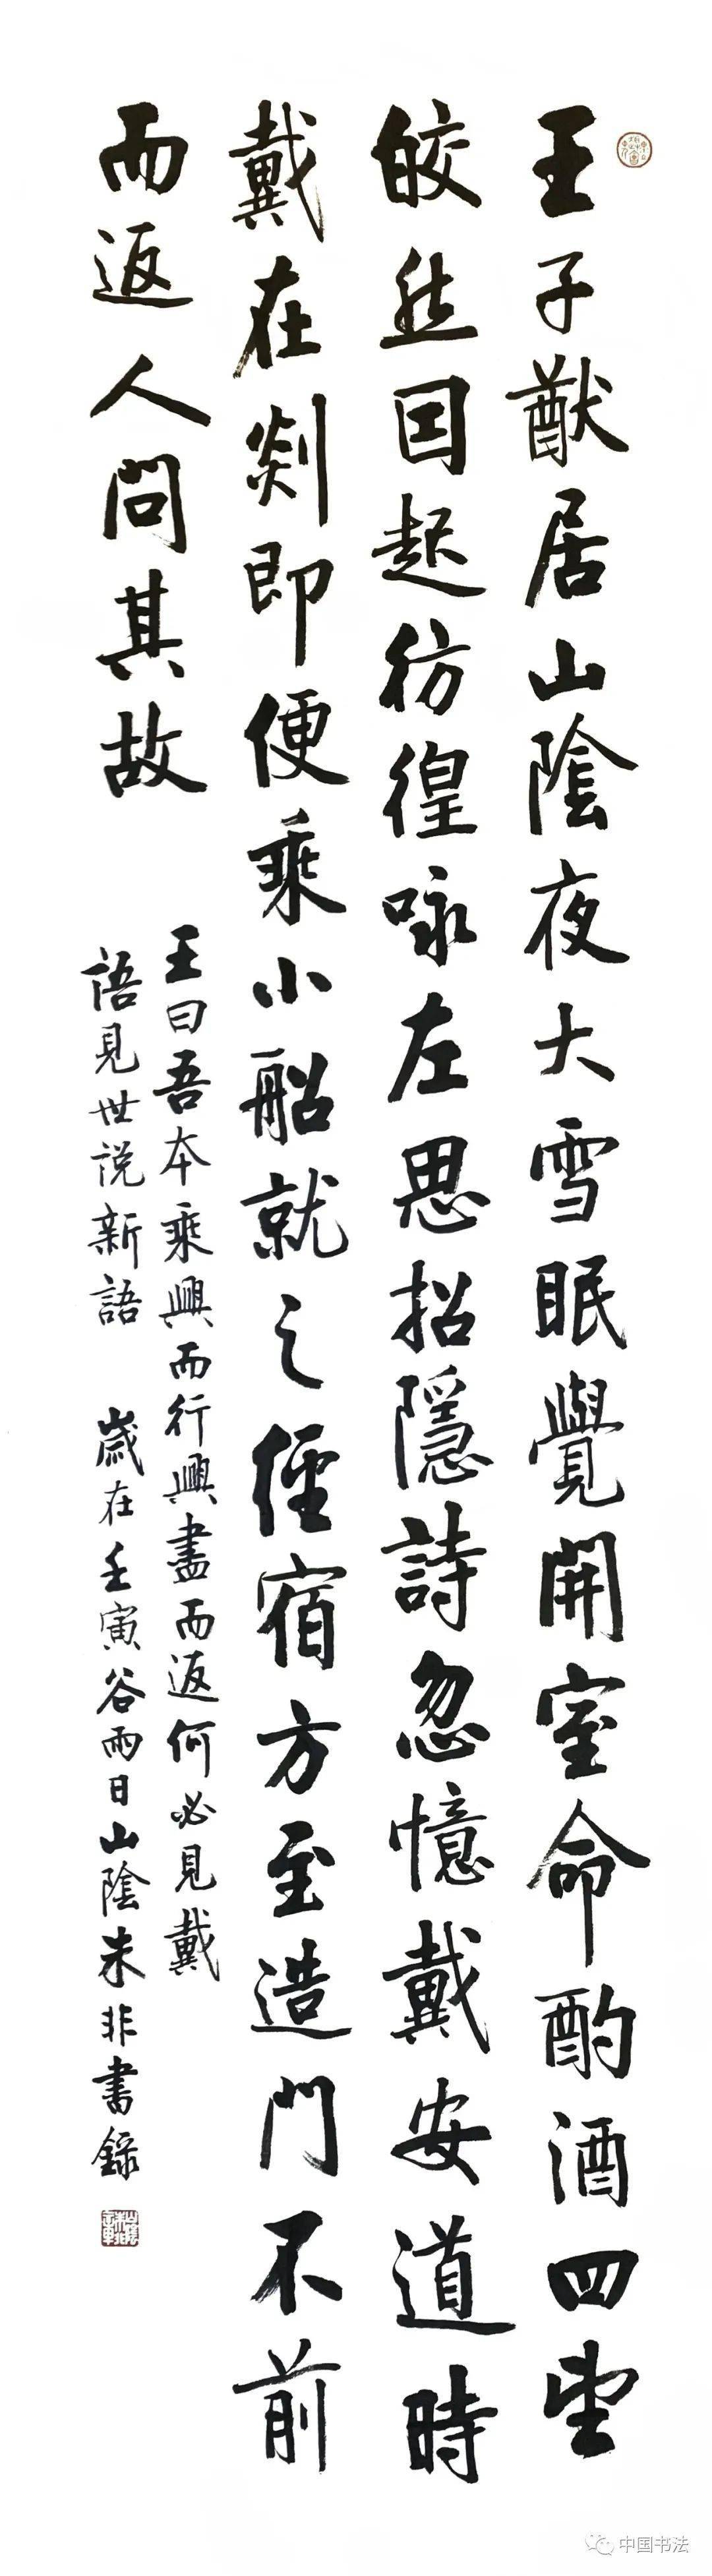 王子猷居山陰夜大雪眠覺開室命酌酒四望
皎然因起彷徨咏左思招隱詩忽憶戴安道時
戴在剡即便乘小船就之經宿方至造門不前
而返人問其故
王曰吾本乘興而行興盡而返何必見戴
語見世説新語 歲在壬寅谷雨日山陰朱非書錄
中国书法